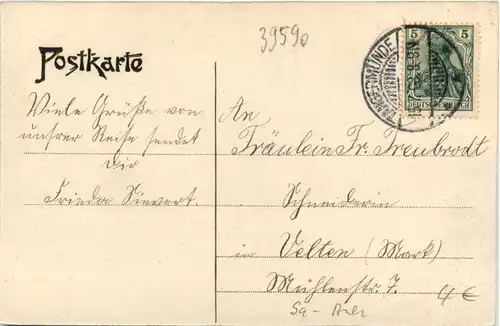 39590
Postkarte
5
TANGERMÜNDE
DEUTSCHES REICH
Viele Grüße von
unsrer Reise sendet
Dir
Frieda Sievert.
An
Fräulein Fr. Treubrodt
Schneiderin
in Velten (Mark)
Mühlenstr. 7.
4 €
Sa -